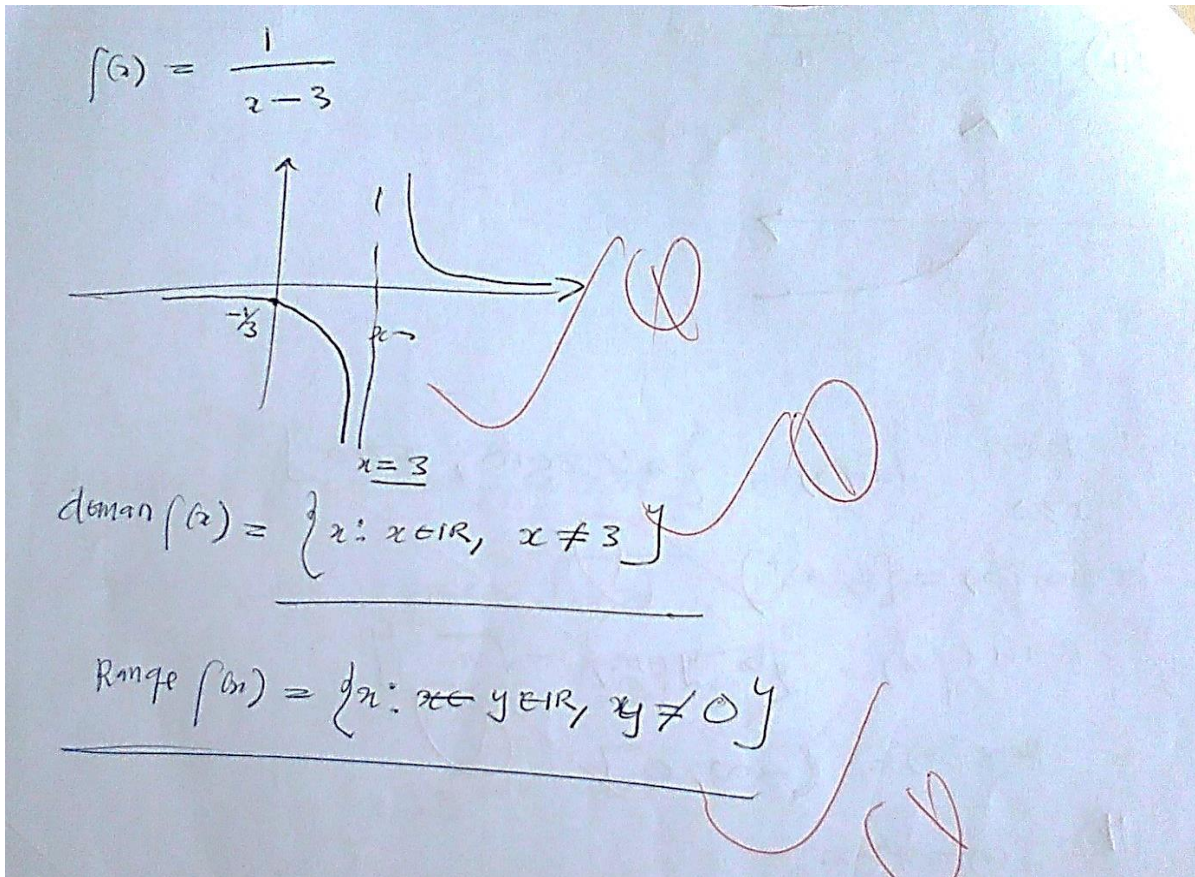 f(x) = 1
x - 3
-1/3
x = 3
doman f(x) = {x: x ∈ IR, x ≠ 3}
Range f(x) = {x: x∈ y ∈ IR, y ≠ 0}